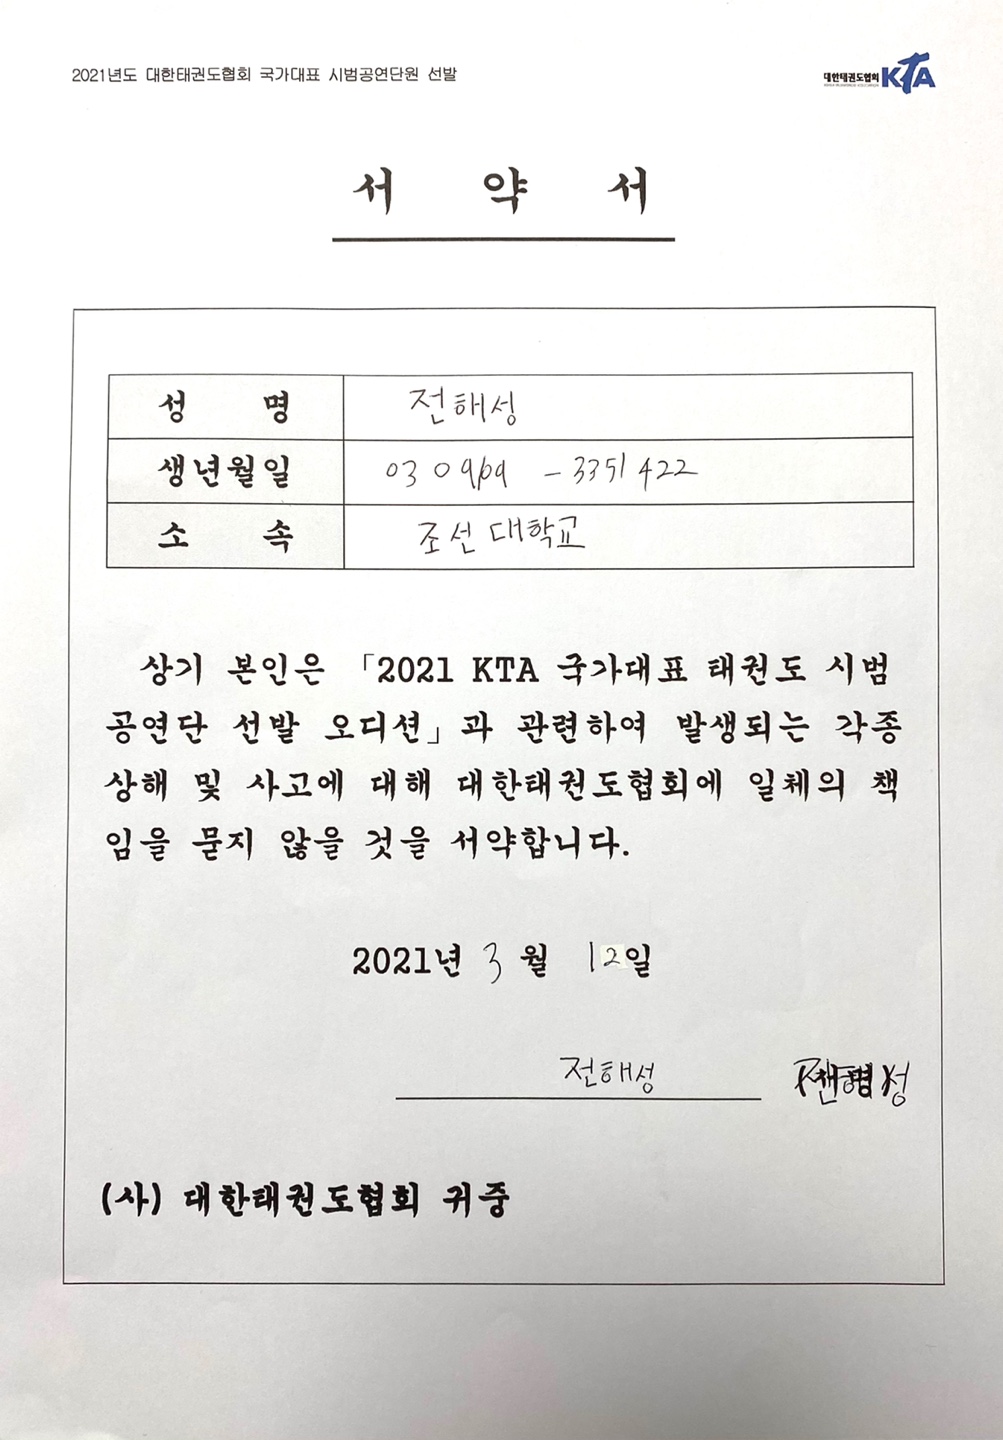 2021년도 대한태권도협회 국가대표 시범공연단원 선발
대한태권도협회 KTA
서 약 서
성 명 전해성
생년월일 - 3351422
소 속 조선대학교
상기 본인은 「2021 KTA 국가대표 태권도 시범
공연단 선발 오디션」과 관련하여 발생되는 각종
상해 및 사고에 대해 대한태권도협회에 일체의 책
임을 묻지 않을 것을 서약합니다.
2021년 3월 12일
전해성
(사) 대한태권도협회 귀중